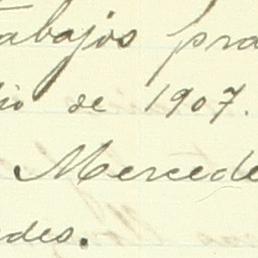 abajos pra
io de 1907.
Mercede
des.